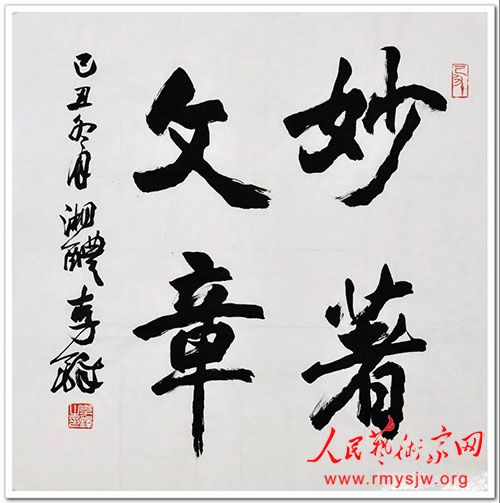 妙著
文章
己丑冬月湘醴
人民藝術家网
www.rmysjw.org